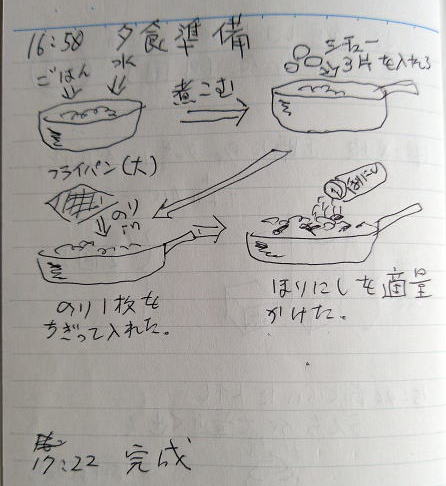 16:58 夕食準備
ごはん 水
煮こむ
シチュー
3片を入れる
フライパン(大)
のり
ほりにし
のり1枚を
ちぎって入れた。
ほりにしを適量
かけた。
17:22 完成